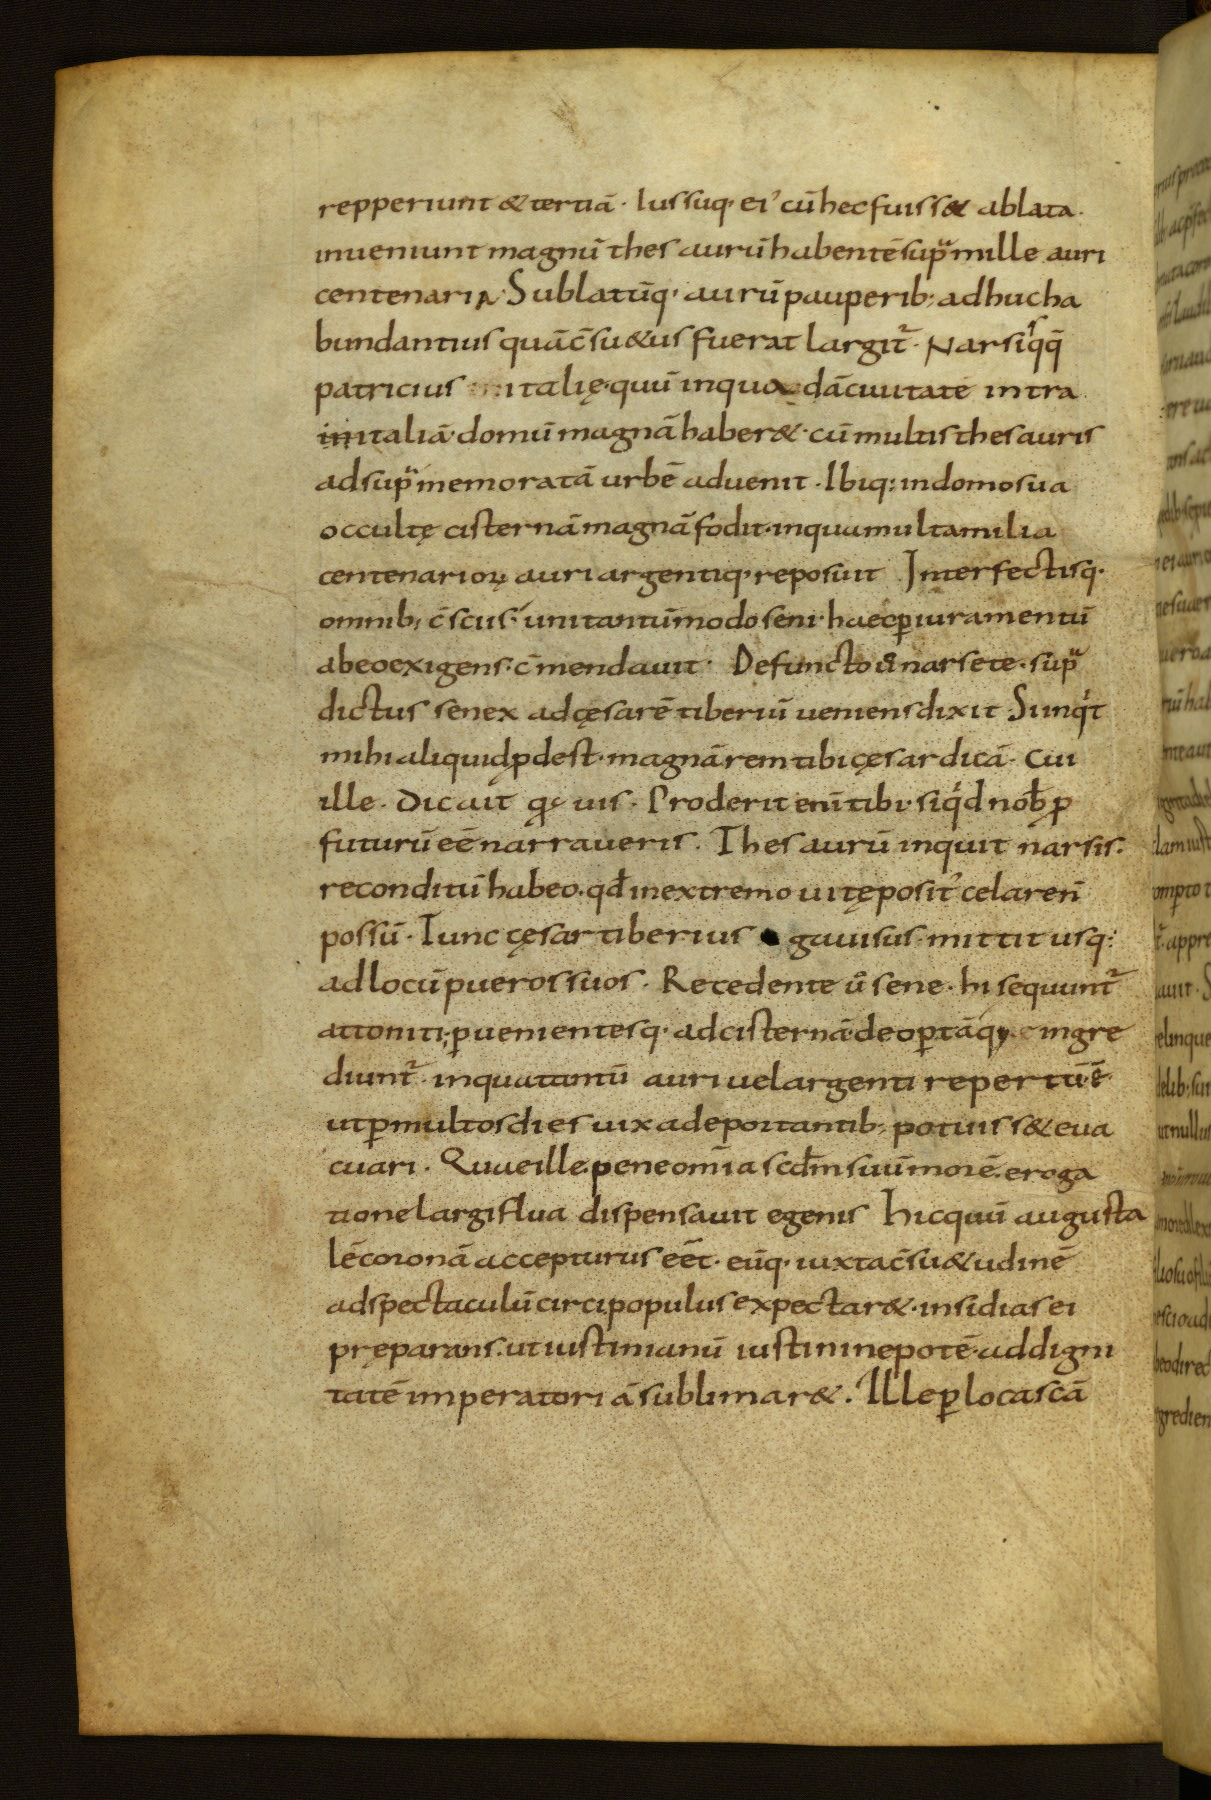 repperiunt & tertiā· Iussuq· ei' cū hec fuiss& ablata·
inveniunt magnū thesaurū habentē supra mille auri
centenaria· Sublatūq· aurū pauperib; adhuc ha
bundantius quā c̄su&us fuerat largit̄· Narsisqq̄
patricius italię· quū in quadā civitate intra
in italiā· domū magnā haber&· cū multis thesauris
ad sup̄memoratā urbē advenit· Ibiq; in domo sua
occultę cisternā magnā fodit· in qua multa milia
centenarioꝝ auri argentiq· reposuit Interfectisq·
omnib; c̄sciis· uni tantūmodo seni· haec ꝑ iuramentū
ab eo exigens· c̄mendavit· Defuncto ū narsete· sup̄
dictus senex ad cęsarē tiberiū veniens dixit Si inq̇t
mihi aliquid ꝓdest· magnā rem tibi cęsar dicā· Cui
ille· Dic ait qđ vis· Proderit enī tibi· siq̇d nob̄ ꝓ
futurū eē narraveris· Thesaurū inquit narsis·
reconditū habeo· qđ in extremo vitę posit' celare n̄
possū· Tunc cęsar tiberius gavisus· mittit usq;
ad locū pueros suos· Recedente ū sene· hi sequunt̄
attoniti; ꝑvenientesq· ad cisternā· deoꝑtāq· ingre
diunt̄· in qua tantū auri vel argenti repertū ē·
ut ꝑ multos dies vix a deportantib; potuiss& eva
cuari· Quae ille pene omīa scd̄m suū morē· eroga
tione largiflua dispensavit egenis Hic quū augusta
lē coronā accepturus eēt· eūq· iuxta c̄su&udinē
ad spectaculū circi populus expectar&· insidias ei
pręparans· ut iustinianū iustini nepotē· ad digni
tatē imperatoriā sublimar&· Ille ꝑ loca scā